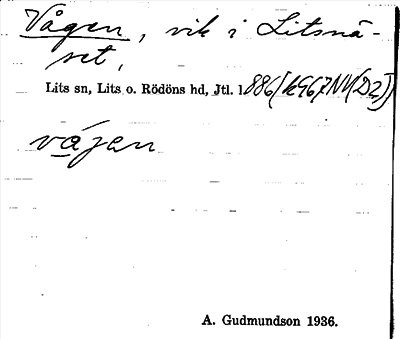 Vågen, vik i Litsnä-
set,
Lits sn, Lits o. Rödöns hd, Jtl. 1886[k967NV(D2)]
vágen
A. Gudmundson 1936.